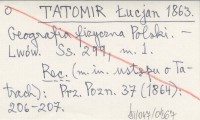 TATOMIR Łucjan 1863.
Geografia fizyczna Polski. –
Lwów. Ss. 277, m. 1.
Rec. (m. in. ustępu o Ta-
trach): Prz. Pozn. 37 (1864):
206-207.